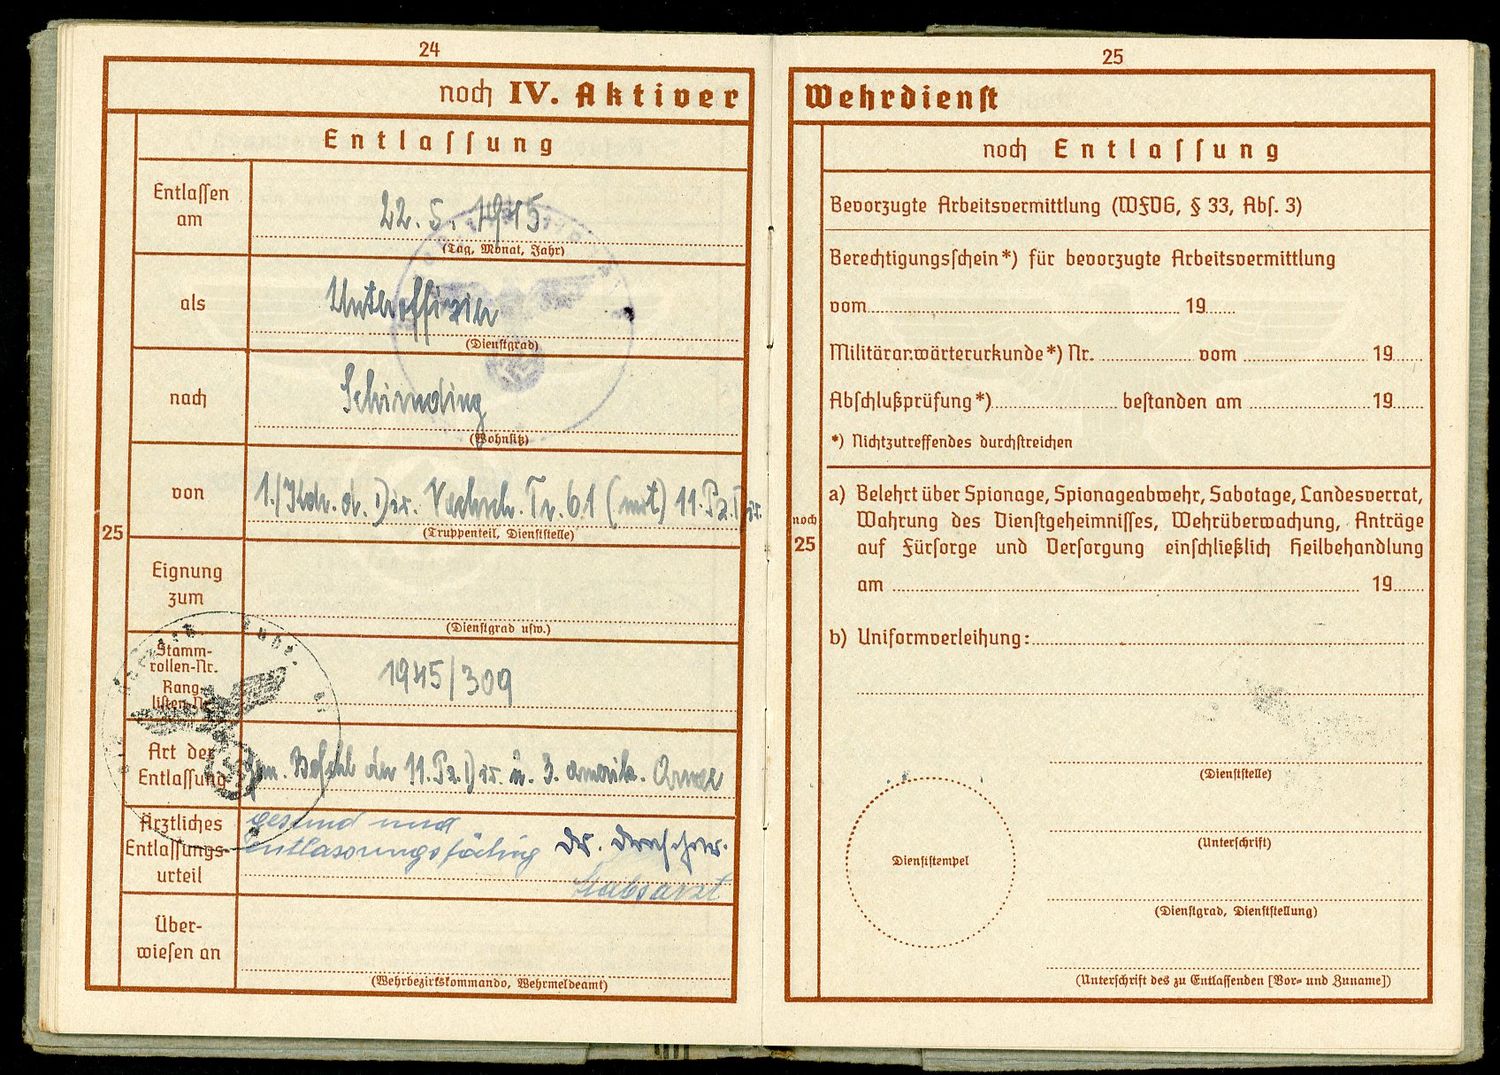 24
noch IV. Aktiver
Entlassung
Entlassen
am
22. 5. 1945
(Tag, Monat, Jahr)
als
Unteroffizier
(Dienstgrad)
nach
Schirnding
(Wohnsitz)
von
1./Kdr. d. Div. Nachsch. Tr. 61 (mot) 11. Pz. Div.
(Truppenteil, Dienststelle)
25
Eignung
zum
(Dienstgrad usw.)
Stamm-
rollen-Nr.
Rang-
listen-Nr.
1945/309
Art der
Entlassung
gem. Befehl der 11. Pz. Div. u. 3. amerik. Armee
Ärztliches
Entlassungs-
urteil
gesund und
entlassungsfähig Dr.
Stabsarzt
Über-
wiesen an
(Wehrbezirkskommando, Wehrmeldeamt)
25
Wehrdienst
noch Entlassung
Bevorzugte Arbeitsvermittlung (WFVG, § 33, Abs. 3)
Berechtigungsschein*) für bevorzugte Arbeitsvermittlung
vom 19
Militäranwärterurkunde*) Nr. vom 19
Abschlußprüfung*) bestanden am 19
*) Nichtzutreffendes durchstreichen
noch
25
a) Belehrt über Spionage, Spionageabwehr, Sabotage, Landesverrat,
Wahrung des Dienstgeheimnisses, Wehrüberwachung, Anträge
auf Fürsorge und Versorgung einschließlich Heilbehandlung
am 19
b) Uniformverleihung:
(Dienststelle)
(Unterschrift)
Dienststempel
(Dienstgrad, Dienststellung)
(Unterschrift des zu Entlassenden [Vor- und Zuname])